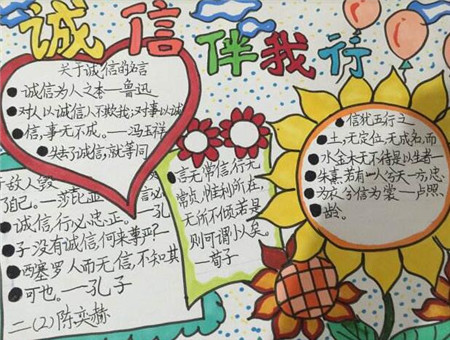 诚信伴我行
关于诚信的名言
诚信为人之本——鲁迅
对人以诚信人不欺我;对事以诚
信,事无不成。——冯玉祥
失去了诚信,就等同
于敌人毁
了自己。——莎士比亚 言必
诚信,行必忠正。——孔
子 没有诚信,何来尊严?—
西塞罗 人而无信,不知其
可也。——孔子
二(2)陈奕赫
言无常信,行无
常贞,惟利所在,
无所不倾,若是
则可谓小人矣。
——荀子
信犹五行之
土,无定位,无成名,而
水金木无不待是以生者—
朱熹 若有一兮天一方,忠
为衣兮信为裳—卢照